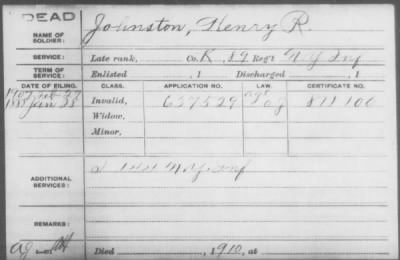 DEAD
NAME OF SOLDIER: Johnston, Henry R.
SERVICE: Late rank, Co. K, 89 Reg't N.Y. Inf
TERM OF SERVICE: Enlisted , 1 Discharged , 1
DATE OF FILING. CLASS. APPLICATION NO. LAW. CERTIFICATE NO.
Invalid, 637529 811100
Widow,
Minor,
ADDITIONAL SERVICES:
N.Y. Inf
REMARKS:
Died , 1910, at